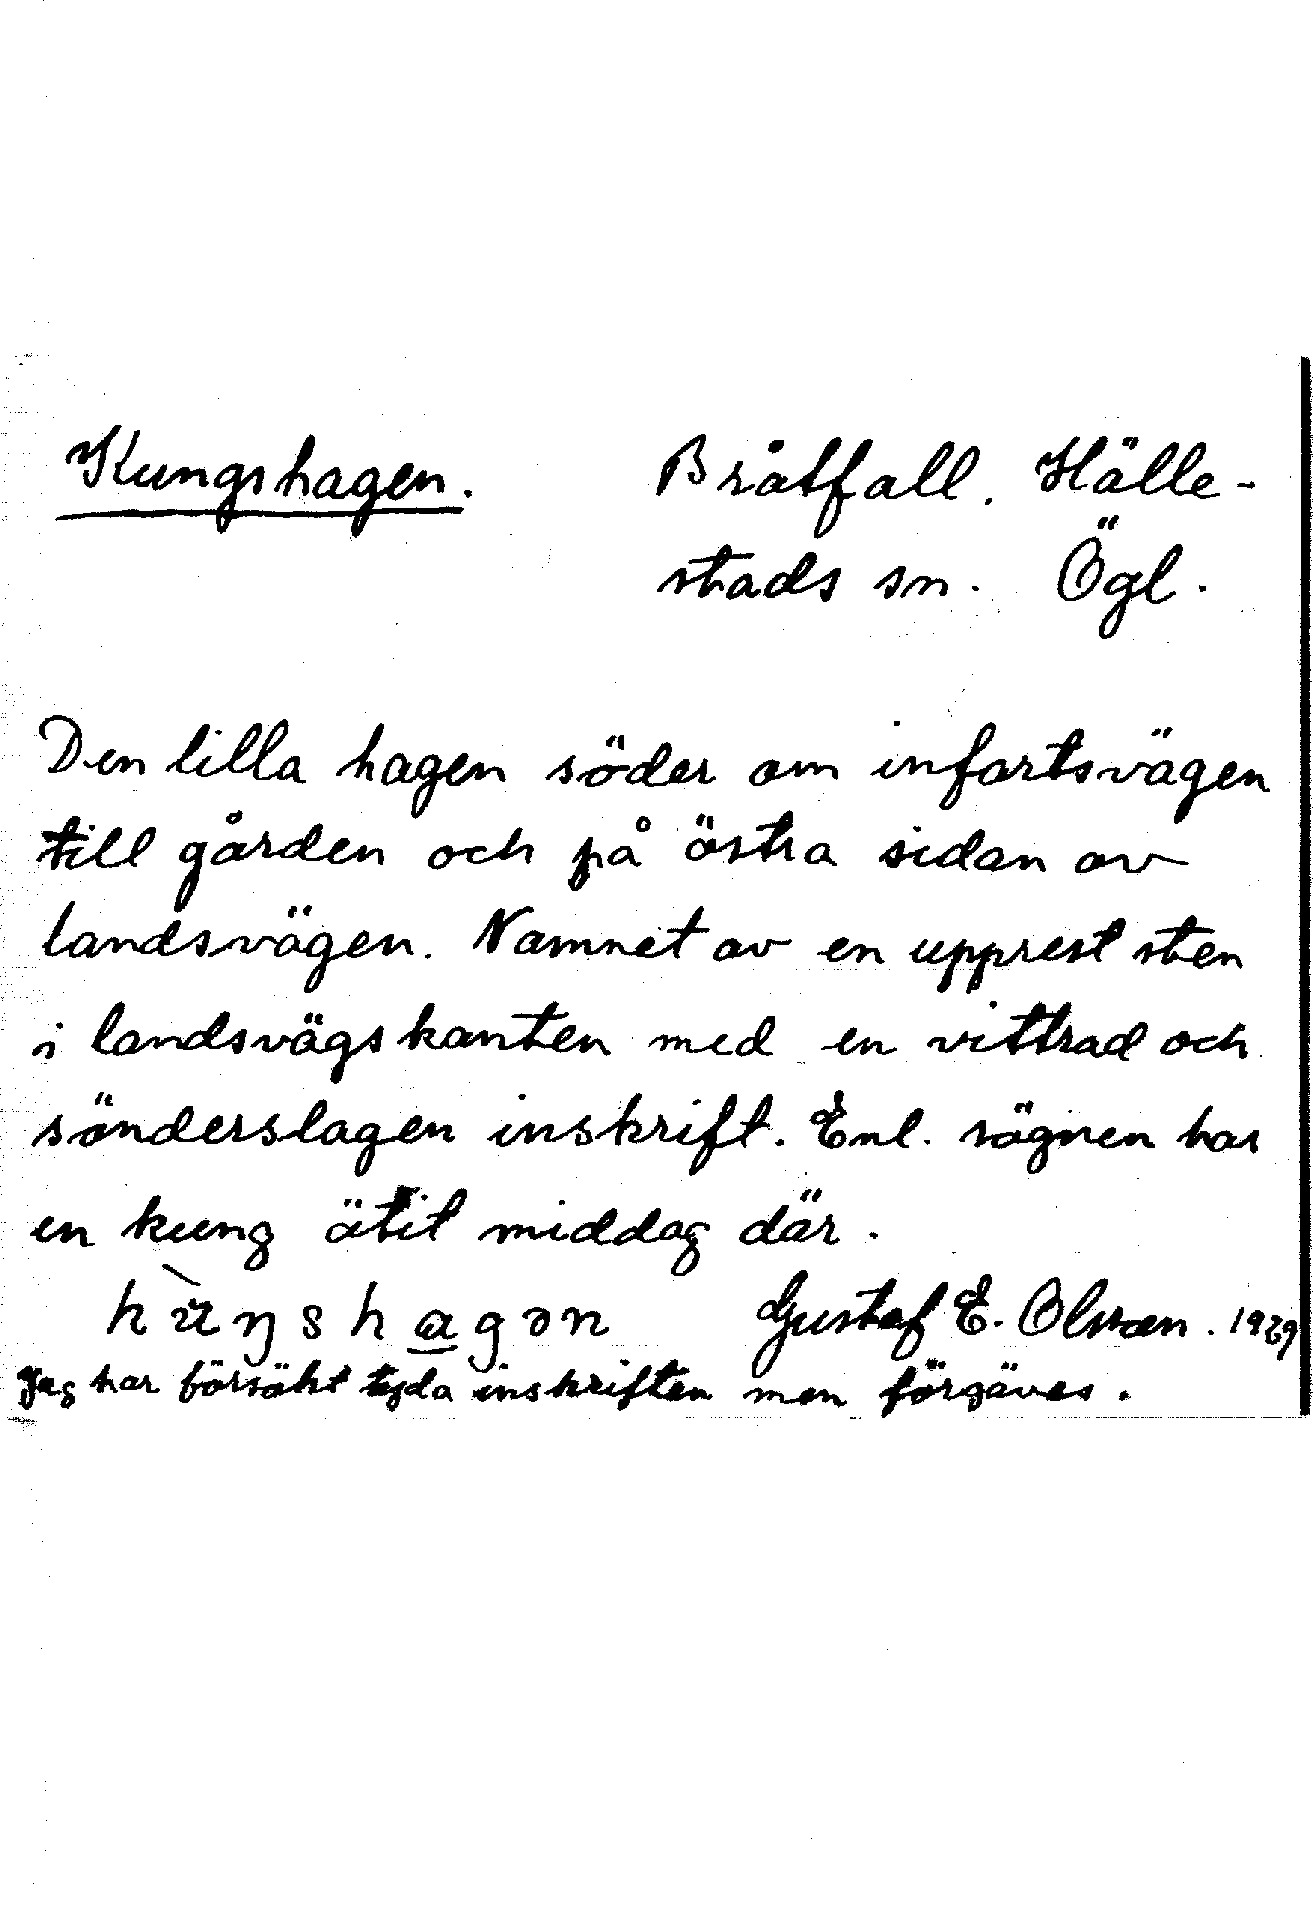 Kungshagen. Bråtfall. Hälle-
stads sn. Ögl.
Den lilla hagen söder om infartsvägen
till gården och på östra sidan av
landsvägen. Namnet av en upprest sten
i landsvägskanten med en vittrad och
sönderslagen inskrift. Enl. sägnen har
en kung ätit middag där.
Gustaf E. Olsson. 1929
Jag har försökt tyda inskriften men förgäves.